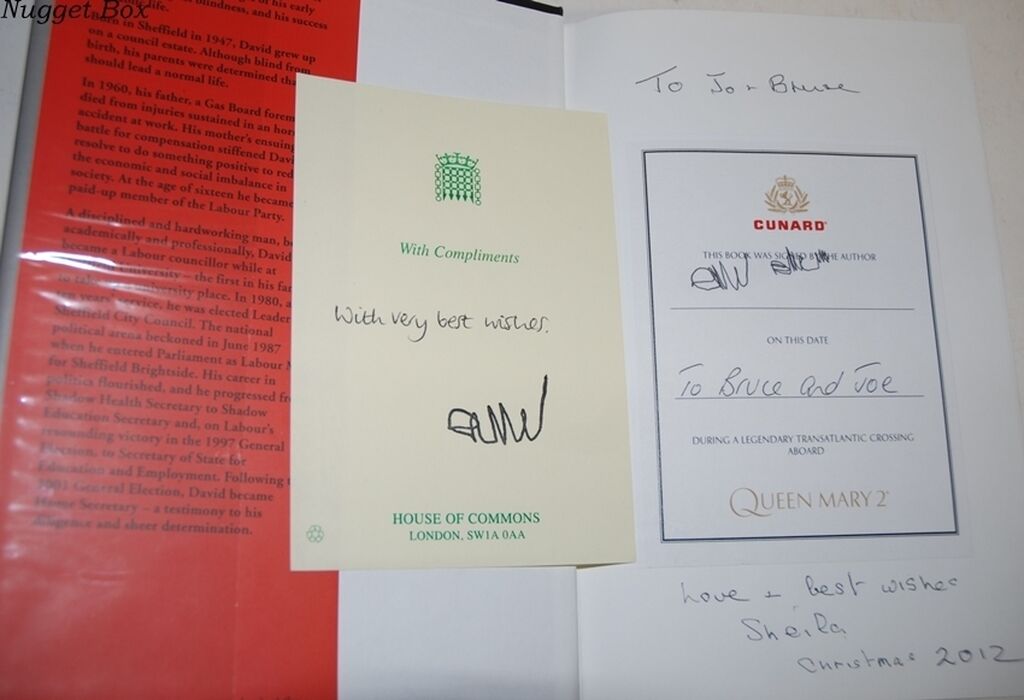 Nugget Box
of his early
life. blindness, and his success
Born in Sheffield in 1947, David grew up
on a council estate. Although blind from
birth, his parents were determined tha
should lead a normal life.
In 1960, his father, a Gas Board forem
died from injuries sustained in an hor
accident at work. His mother's ensuing
battle for compensation stiffened Davi
resolve to do something positive to red
the economic and social imbalance in
society. At the age of sixteen he became
paid-up member of the Labour Party.
A disciplined and hardworking man, b
academically and professionally, David
became a Labour councillor while at
University – the first in his fam
to university place. In 1980, a
ten years' service, he was elected Leader
Sheffield City Council. The national
political arena beckoned in June 1987
when he entered Parliament as Labour M
for Sheffield Brightside. His career in
politics flourished, and he progressed fr
Shadow Health Secretary to Shadow
Education Secretary and, on Labour's
resounding victory in the 1997 General
Election, to Secretary of State for
Education and Employment. Following
2001 General Election, David became
Home Secretary – a testimony to his
diligence and sheer determination.
With Compliments
With very best wishes.
HOUSE OF COMMONS
LONDON, SW1A 0AA
To Jo + Bruce
CUNARD
THIS BOOK WAS SIGNED BY THE AUTHOR
ON THIS DATE
To Bruce and Joe
DURING A LEGENDARY TRANSATLANTIC CROSSING
ABOARD
QUEEN MARY 2
Love + best wishes
Sheila
Christmas 2012